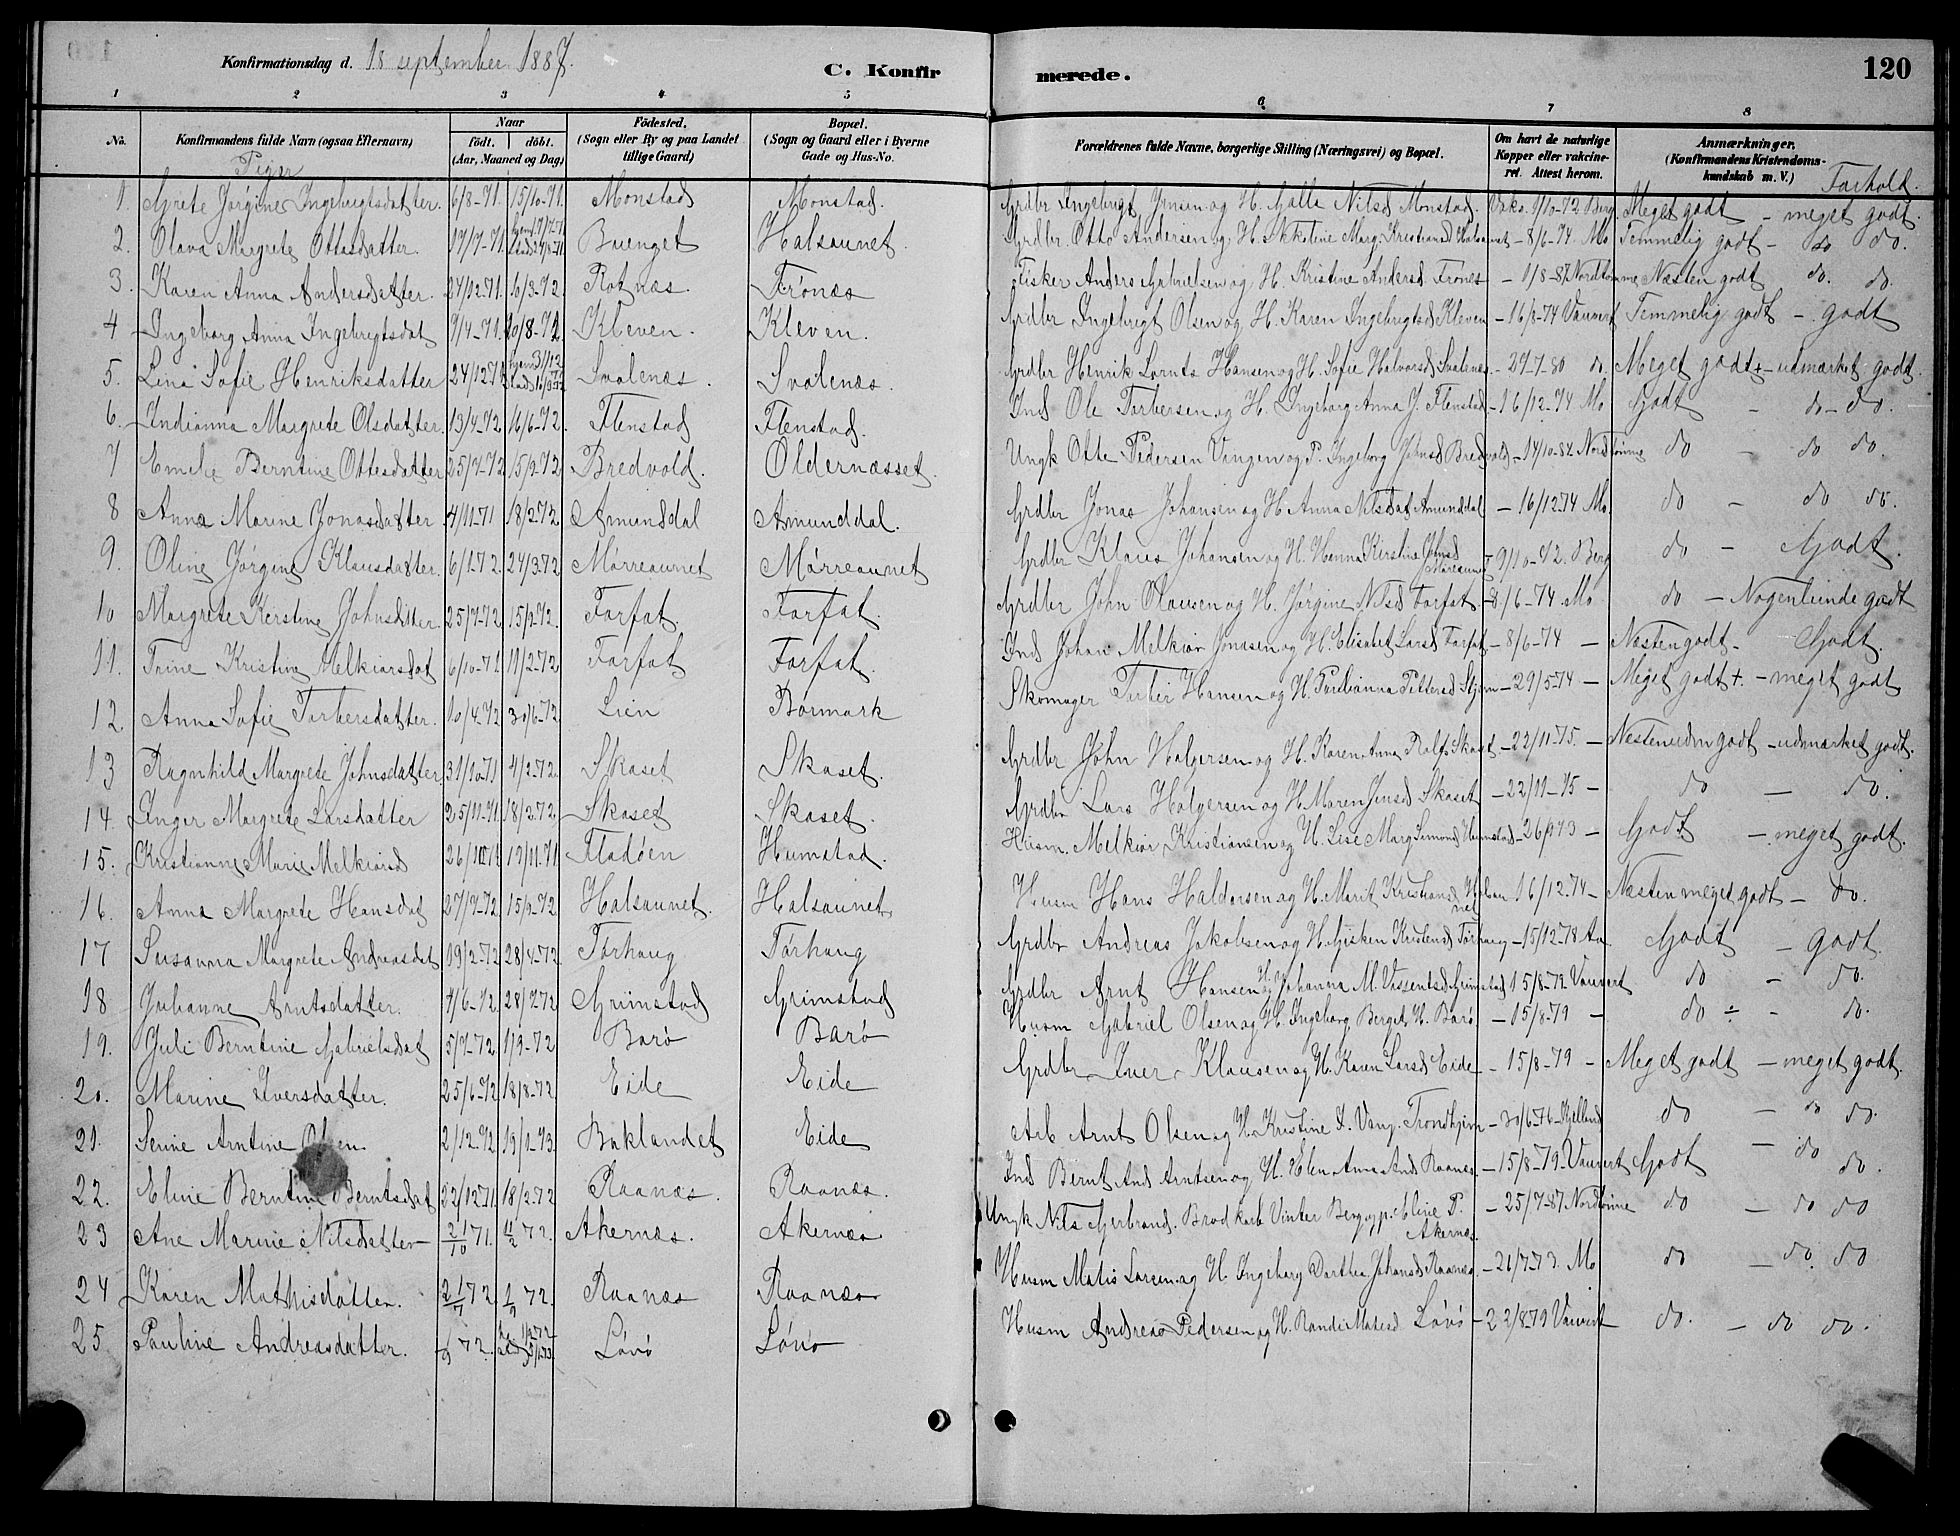 120
Konfirmationsdag d. 18 september 1887.
C. Konfirmerede.
1 2 3 4 5 6 7 8
No. Konfirmandens fulde Navn (ogsaa Efternavn) Naar födt. döbt. (Aar, Maaned og Dag) Födested. (Sogn eller By og paa Landet tillige Gaard) Bopæl. (Sogn og Gaard eller i Byerne Gade og Hus-No. Forældrenes fulde Navne, borgerlige Stilling (Næringsvei) og Bopæl. Om havt de naturlige Kopper eller vakcineret. Attest herom. Anmærkninger. (Konfirmandens Kristendomskundskab m. V.) Forhold.
Piger
1. Grete Jørgine Ingebrigtsdatter. 6/8-71. 15/10-71. Monstad Monstad. Grdbr Ingebrigt Jensen og H. Galla Nilsd Monstad. Vaks. 9/10-72 Berg. Meget godt - meget godt.
2. Olava Margrete Ottosdatter. 17/7-71. Buenget Halsaunet. Grdbr Otto Andersen og H. Marg. Kristiansd - 8/6-74. Mo Temmelig godt - do do.
3. Karen Anna Andersdatter. 24/12-71. 16/3-72. Rotnæs. Frønæs Fisker Anders Gabrielsen og H. Kristine Andersd Frønes - 1/8-87. Næsten godt do. do.
4 Ingeborg Anna Ingebrigtsdat 9/4-71. Kleven. Kleven. Grdbr Ingebrigt Olsen og H. Karen Ingebrigtsd Kleven - 16/8-74 Temmelig godt - godt
5. Lina Sofie Henriksdatter 24/12-71 Svalenæs. Svalenæs. Grdbr Henrik Lornts Hansen og H. Sofie Halvorsd Svalenæs - 29/7-80 do. Meget godt + - udmærket godt.
6. Indianna Margrete Olsdatter. 13/4-72 16/6-72. Flenstad Flenstad. Ind Ole Torbersen og H. Ingeborg Anna J. Flenstad - 16/12-74 Mo Godt - do - do.
7 Emelie Berntine Ottesdatter 25/7-72 15/9-72 Bredvold. Oldernæsset. Ungk Otte Pedersen Vangen og P. Ingeborg Johnsd Bredvold - 14/10-82. do - do do.
8 Anna Marine Jonasdatter 4/11-71 18/2-72 Amunddal Amunddal. Grdbr Jonas Johansen og H. Anna Nilsdat Amunddal - 16/12-74 Mo. do - do do.
9. Oline Jørgine Klausdatter. 6/1-72. 24/3-72 Mørreaunet Mørreaunet Grdbr Klaus Johansen og H. Hanna Kirstine Johnsd - 9/10-72. Berg do - Godt.
10 Margrete Kerstine Johnsdatter. 25/7-72 15/9-72. Forfot. Forfot. Grdbr John Olausen og H. Jørgine Nilsd Forfot - 8/6-74 Mo do - Nogenlunde godt
11. Trine Kristine Melkiorsdat 6/10-71 11/2-72 Forfot Forfot. Ind Johan Melkior Jonasen og H. Elisabet Larsd Forfot - 8/6-74 - Næsten godt - Godt.
12. Anna Sofie Torbersdatter. 10/4-72 30/6-72 Lien Bormark Skomager Torber Hansen og H. Pettersd - 29/5-74 - Meget godt +. - meget godt
13 Ragnhild Margrete Johnsdatter 31/10-71 4/2-72. Skaset Skaset. Grdbr John Holgersen og H. Karen Anna Rolfs Skaset - 22/11-75. - godt - udmærket godt.
14. Inger Margrete Larsdatter 25/11-71. 18/2-72. Skaset Skaset. Grdbr Lars Holgersen og H. Maren Jensd Skaset - 22/11-75 - do - do.
15. Kristianne Marie Melkiorsd Fladøen Humstad. Husm. Melkior Kristiansen og H. Lise Marg Simonsd Humstad - Godt. - meget godt.
16. Anna Margrete Hansdat 27/7-72 15/9-72 Halsaunet. Halsaunet. Husm Hans Haldorsen og H. Marit Kristiansd 16/12-74 - Næsten meget godt - do.
17 Susanna Margrete Andreasdat 28/4-72. Tørhaug Tørhaug Grdbr Andreas Jakobsen og H. Kristensd Tørhaug - 15/12-78 Aa. Godt - godt.
18 Julianne Arntsdatter. 4/6-72 28/7-72 Grimstad Grimstad Grdbr Arnt Hansen og H. Johanna M. Vissentsd Grimstad 15/8-79 do - do.
19. Juli Berntine Gabrielsdat 5/7-72. 1/9-72 Barø Barø Husm Gabriel Olsen og H. Ingeborg Berget H. Barø. - 15/8-79 - do ÷ - do.
20. Marine Iversdatter. 25/6-72 18/8-72 Eide Eide Grdbr Iver Klausen og H. Karen Larsd Eide - 15/8-79 - Meget godt - meget godt.
21. Serine Arntine Olsen 2/12-72 19/1-73. Baklandet Eide Arb Arnt Olsen og H. Kristine Trondhjem - 30/6-76 - do - do do.
22. Eline Berntine Berntsdat 22/12-71. 18/2-72 Raanæs. Raanæs. Ind Bernt And Arntsen og H. Elen Anna And Raanæs. - 15/8-79 - Godt - do do.
23 Ane Marine Nilsdatter 21/10 71. 11/2 72. Akernæs. Akernæs Ungk Nils Gjerbrand. Eline P. Akernæs. - 25/7-87 do - do do
24 Karen Mathisdatter. 21/7 72. 72. Raanæs Raanæs Husm Matis Larsen og H. Ingeborg Dorthea Johansd Raanæs - 21/7-73. Mo do - do. do
25 Pauline Andreasdatter. 72. Løvø Løvø Husm Andreas Pedersen og H. Randi Matisd Løvø - 22/8-79 do. - do do.